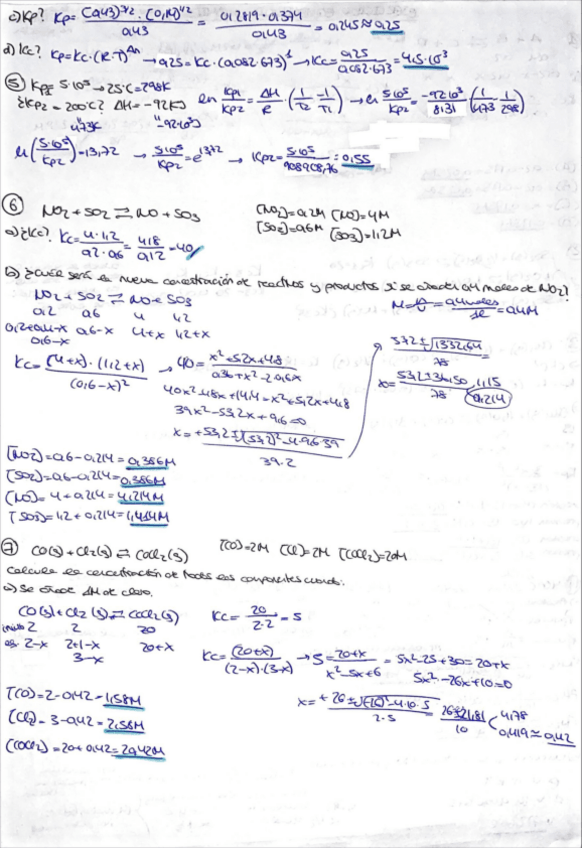 c) Kp? Kp = (0,43)^3/2 · (0,14)^1/2 / 0,43 = 0,2819 · 0,374 / 0,43 = 0,245 ≈ 0,25
d) Kc? Kp = Kc · (R·T)^Δn → 0,25 = Kc · (0,082 · 673)^1 → Kc = 0,25 / 0,082 · 673 = 4,5 · 10^3
⑤ Kp = 5·10^5 → 25°C = 298K
¿Kp2 = 200°C? ΔH = -92KJ
473K -92·10^3 J
ln Kp1/Kp2 = ΔH/R · (1/T2 - 1/T1) → ln 5·10^5/Kp2 = -92·10^3/8,31 (1/473 - 1/298)
ln (5·10^5/Kp2) = 13,72 → 5·10^5/Kp2 = e^13,72 → Kp2 = 5·10^5/908908,76 = 0,55
⑥ NO2 + SO2 ⇄ NO + SO3 [NO2] = 0,2M [NO] = 4M
[SO2] = 0,6M [SO3] = 1,2M
a) ¿Kc? Kc = 4 · 1,2 / 0,2 · 0,6 = 4,8 / 0,12 = 40
b) ¿Cuál será la nueva concentración de reactivos y productos si se añaden 0,4 moles de NO2?
NO2 + SO2 ⇄ NO + SO3
0,2 0,6 4 1,2
0,2+0,4-x 0,6-x 4+x 1,2+x
0,6-x
M = n/V = 0,4 moles / 1l = 0,4M
Kc = (4+x) · (1,2+x) / (0,6-x)^2 → 40 = x^2 + 5,2x + 4,8 / 0,36 + x^2 - 2·0,6x
40x^2 - 48x + 14,4 = x^2 + 5,2x + 4,8
39x^2 - 53,2x + 9,6 = 0
x = +53,2 ± √(53,2)^2 - 4·9,6·39 / 39·2
53,2 ± √1332,64 / 78
x = 53,2 ± 36,50 / 78 1,15
0,214
[NO2] = 0,6 - 0,214 = 0,386M
[SO2] = 0,6 - 0,214 = 0,386M
[NO] = 4 + 0,214 = 4,214M
[SO3] = 1,2 + 0,214 = 1,414M
⑦ CO(g) + Cl2(g) ⇄ COCl2(g) [CO] = 2M [Cl] = 2M [COCl2] = 20M
Calcula la concentración de todos los componentes cuando:
a) Se añade 1M de cloro.
CO(g) + Cl2(g) ⇄ COCl2(g) Kc = 20 / 2·2 = 5
inicio 2 2 20
eq. 2-x 2+1-x 20+x
3-x
Kc = (20+x) / (2-x)·(3-x) → 5 = 20+x / x^2-5x+6 = 5x^2-25+30 = 20+x
5x^2-26x+10 = 0
x = +26 ± √(26)^2-4·10·5 / 2·5 = 26 ± 21,81 / 10 4,78
0,419 ≈ 0,42
[CO] = 2 - 0,42 = 1,58M
[Cl2] = 3 - 0,42 = 2,58M
[COCl2] = 20 + 0,42 = 20,42M